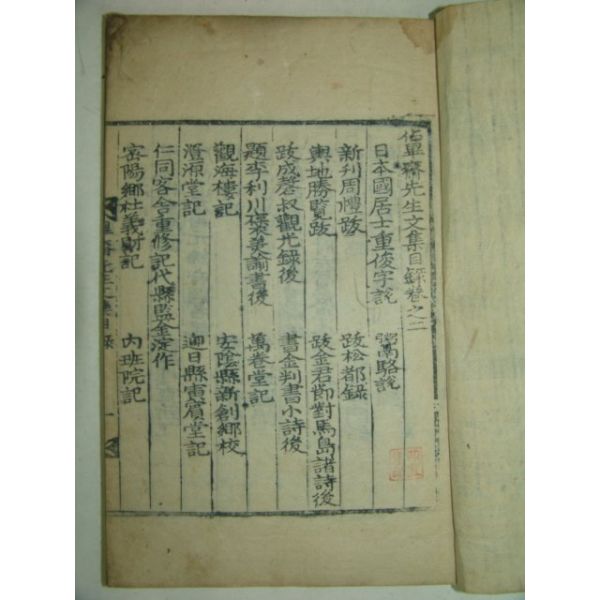 佔畢齋先生文集目錄卷之二
日本國居士重俊字說 鬻駱說
新刊周禮跋 跋松都錄
輿地勝覽跋 跋金君節對馬島諸詩後
跋成磬叔觀光錄後 書金判書小詩後
題李利川璨英諭書後 萬卷堂記
觀海樓記 安陰縣新創鄉校
澄源堂記 迎日縣寅賓堂記
仁同客舍重修記代縣監金作
密陽鄉社義財記 內班院記